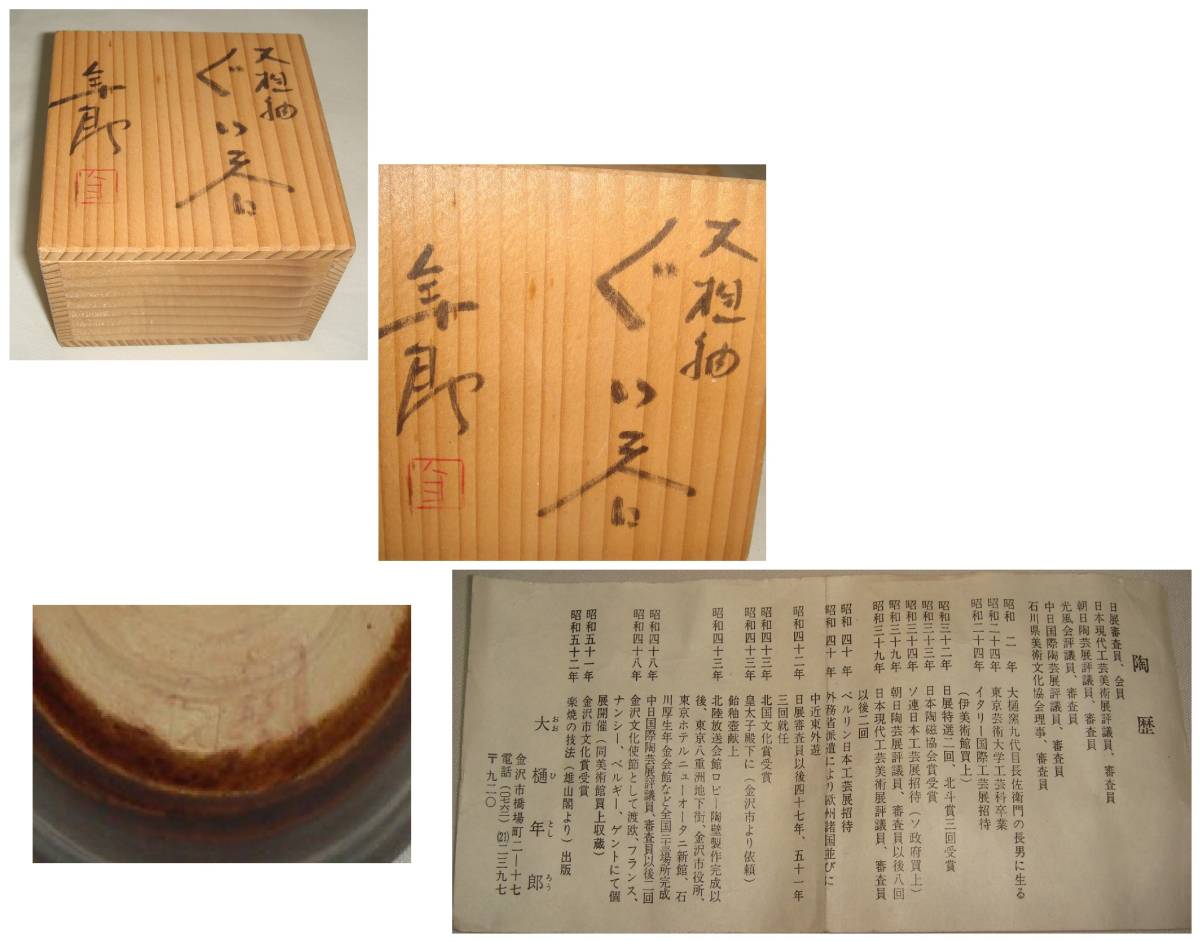 大樋釉
ぐい呑
年郎
大樋釉
ぐい呑
年郎
陶歴
日展審査員、会員
日本現代工芸美術展評議員、審査員
朝日陶芸展評議員、審査員
光風会評議員、審査員
中日国際陶芸展評議員、審査員
石川県美術文化協会理事、審査員
昭和二年 大樋窯九代目長左衛門の長男に生る
昭和二十四年 東京芸術大学工芸科卒業
昭和二十四年 イタリー国際工芸展招待
(伊美術館買上)
昭和三十二年 日展特選二回、北斗賞三回受賞
昭和三十三年 日本陶磁協会賞受賞
昭和三十四年 ソ連日本工芸展招待(ソ政府買上)
昭和三十九年 朝日陶芸展評議員、審査員以後八回
日本現代工芸美術展評議員、審査員
以後二回
昭和四十年 ベルリン日本工芸展招待
昭和四十年 外務省派遣により欧州諸国並びに
中近東外遊
昭和四十二年 日展審査員以後四七年、五十一年
三回就任
昭和四十三年 北国文化賞受賞
昭和四十三年 皇太子殿下に(金沢市より依頼)
飴釉壺献上
昭和四十三年 北陸放送会館ロビー陶壁製作完成以
後、東京八重洲地下街、金沢市役所、
東京ホテルニューオータニ新館、石
川厚生年金会館など全国三十当場所完成
昭和四十八年 中日国際陶芸展評議員、審査員以後二回
昭和四十八年 金沢文化使節として渡欧、フランス、
ナンシー、ベルギー、ゲントにて個
展開催(同美術館買上収蔵)
昭和五十一年 金沢市文化賞受賞
昭和五十二年 楽焼の技法(雄山閣より)出版
大樋年郎
おおひとしろう
金沢市橋場町二—十七
電話(〇七六二)(21)二三九七
〒九二〇